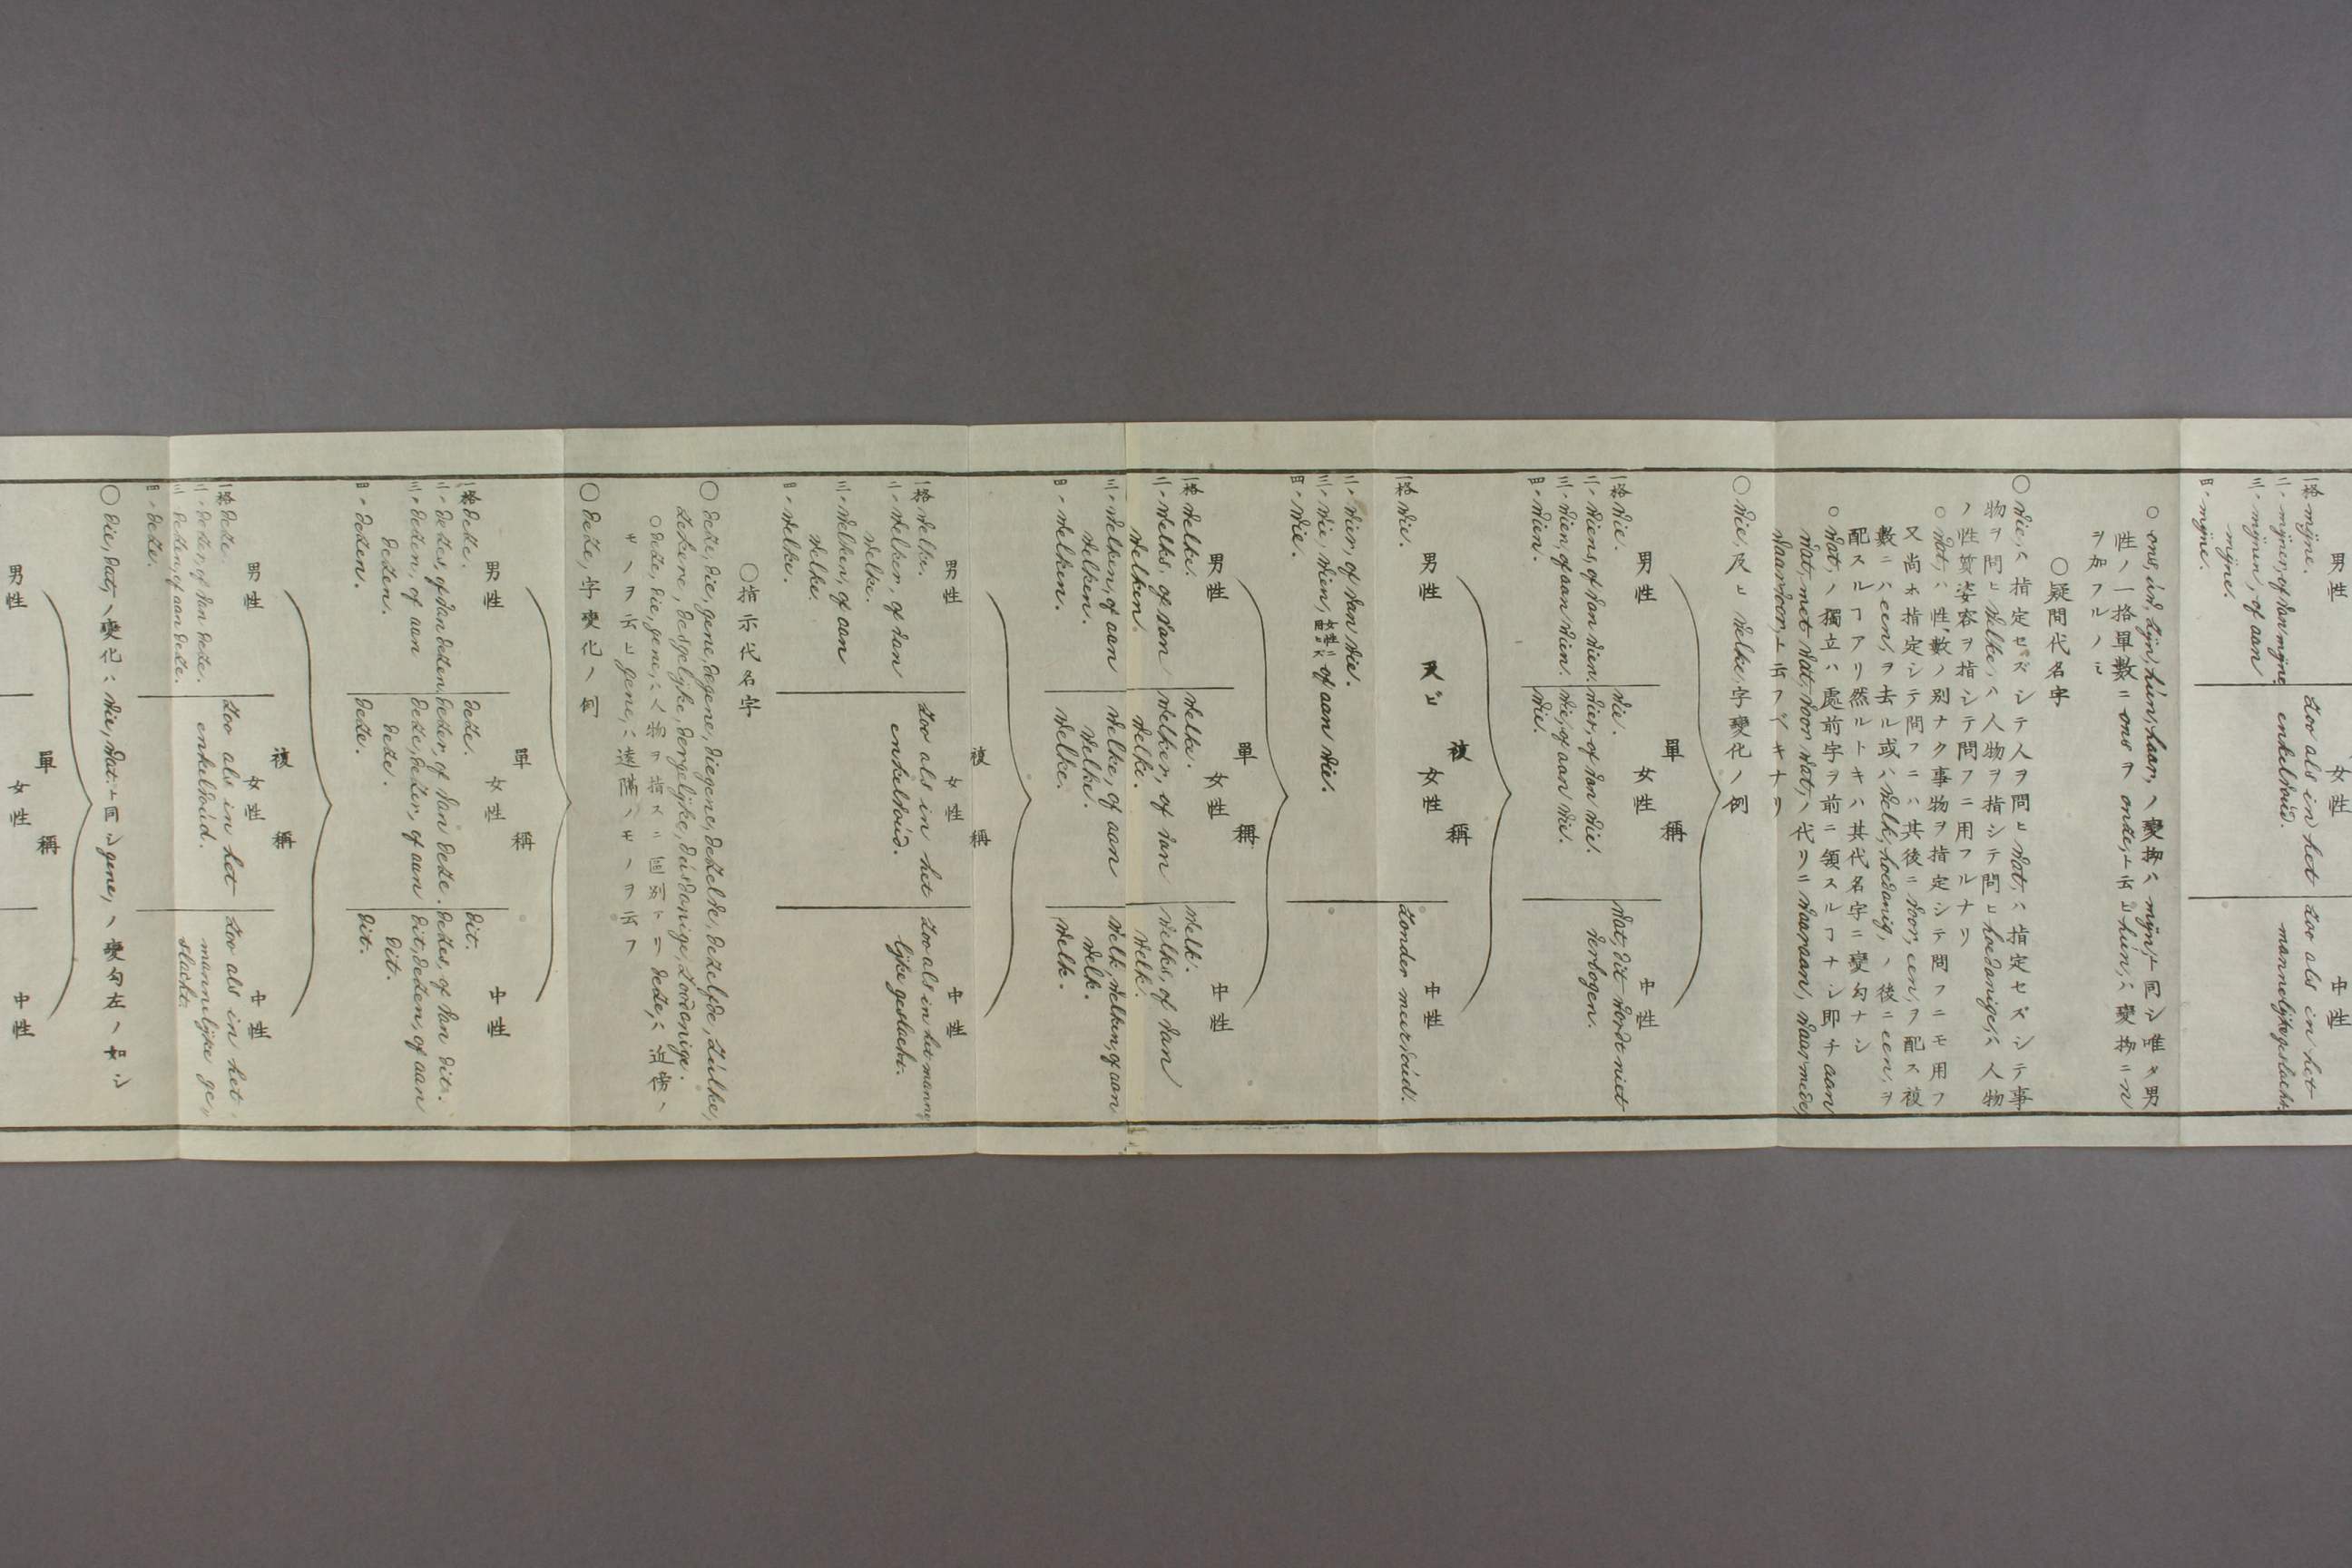 男性
女性
中性
一格 mijne.
二〃 mijner, of van mijne
三〃 mijnen, of aan
mijne.
四〃 mijne.
zoo als in het
enkelvoud.
zoo als in het
mannelijke geslacht.
○ ons, uw, zijn, hun, haar, ノ變抝ハ mijn, ト同シ唯タ男
性ノ一格單數ニ ons ヲ onze, ト云ヒ hun, ハ變抝ニ n
ヲ加フルノミ
○疑問代名字
○ wie, ハ指定セズシテ人ヲ問ヒ wat, ハ指定セズシテ事
物ヲ問ヒ welke, ハ人物ヲ指シテ問ヒ hoedanige, ハ人物
ノ性質姿容ヲ指シテ問フニ用フルナリ
○ wat, ハ性數ノ別ナク事物ヲ指定シテ問フニモ用フ
又尚ホ指定シテ問フニハ其後ニ voor een, ヲ配ス複
數ニハ een, ヲ去ル或ハ welk, hoedanig, ノ後ニ een, ヲ
配スルヿアリ然ルトキハ其代名字ニ變勾ナシ
○ wat, ノ獨立ハ處前字ヲ前ニ領スルヿナシ即チ aan
wat, met wat, voor wat, ノ代リニ waaraan, waarmede,
waarvoor, ト云フベキナリ
○ wie, 及ヒ welke, 字變化ノ例
單稱
男性
女性
中性
一格 wie.
二〃 wiens, of van wien.
三〃 wien, of aan wien.
四〃 wien.
wie.
wier, of van wie.
wie, of aan wie.
wie.
wat, dit wordt niet
verbogen.
複稱
男性 及ヒ 女性
中性
一格 wie.
二〃 wier, of van wie.
三〃 wie, wien, of aan wie.
四〃 wie.
zonder meervoud.
單稱
男性
女性
中性
一格 welke.
二〃 welks, of van
welken.
三〃 welken, of aan
welken.
四〃 welken.
welke.
welker, of van
welke.
welke, of aan
welke.
welke.
welk.
welks, of van
welk.
welk, welken, of aan
welk.
welk.
複稱
男性
女性
中性
一格 welke.
二〃 welker, of van
welke.
三〃 welken, of aan
welke.
四〃 welke.
zoo als in het
enkelvoud.
zoo als in het manne,
lijke geslacht.
○指示代名字
○ deze, die, gene, degene, diegene, dezelve, dezelfde, zulke,
zekere, desgelijke, dergelijke, dusdanige, zoodanige.
○ deze, die, gene, ハ人物ヲ指スニ區別アリ deze, ハ近傍ノ
モノヲ云ヒ gene, ハ遠隔ノモノヲ云フ
○ deze, 字變化ノ例
單稱
男性
女性
中性
一格 deze.
二〃 dezes, of van dezen.
三〃 dezen, of aan
dezen.
四〃 dezen.
deze.
dezer, of van deze.
deze, dezer, of aan
deze.
deze.
dit.
dezes, of van dit.
dit, dezen, of aan
dit.
dit.
複稱
男性
女性
中性
一格 deze.
二〃 dezer, of van deze.
三〃 dezen, of aan deze.
四〃 deze.
zoo als in het
enkelvoud.
zoo als in het
mannelijke ge,
slacht.
○ die, dat, ノ變化ハ wie, wat. ト同シ gene, ノ變勾左ノ如シ
單稱
男性
女性
中性